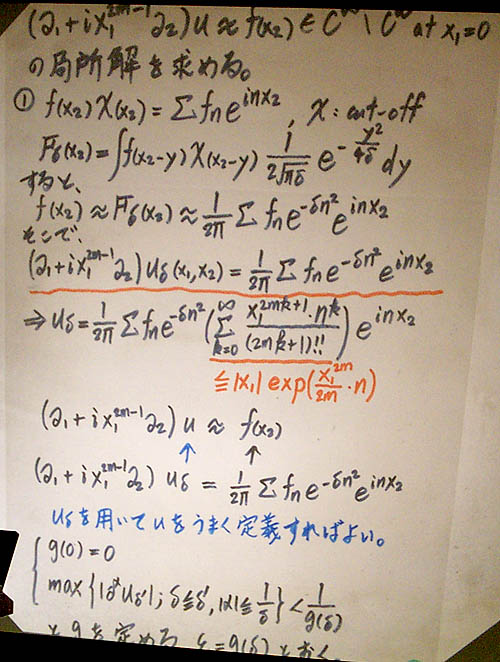 (∂₁+ix₁²ᵐ⁻¹∂₂)u≈f(x₂)∈C^∞\C^ω at x₁=0
の局所解を求める。
① f(x₂)χ(x₂)=Σfₙe^{inx₂}, χ: cut-off
F_δ(x₂)=∫f(x₂-y)χ(x₂-y) 1/(2√πδ) e^{-y²/4δ}dy
すると、
f(x₂)≈F_δ(x₂)≈1/2π Σfₙe^{-δn²}e^{inx₂}
そこで、
(∂₁+ix₁²ᵐ⁻¹∂₂)u_δ(x₁,x₂)=1/2π Σfₙe^{-δn²}e^{inx₂}
⇒u_δ=1/2π Σfₙe^{-δn²}(Σ_{k=0}^{∞} x₁^{2mk+1}·n^k/(2mk+1)!!)e^{inx₂}
≦|x₁|exp(x₁^{2m}/2m·n)
(∂₁+ix₁²ᵐ⁻¹∂₂)u≈f(x₂)
↑ ↑
(∂₁+ix₁²ᵐ⁻¹∂₂)u_δ=1/2π Σfₙe^{-δn²}e^{inx₂}
u_δを用いてuをうまく定義すればよい。
g(0)=0
max{|∂^αu_δ'|; δ≦δ', |α|≦1/δ}<1/g(δ)
とgを定める。ε=g(δ)とおく